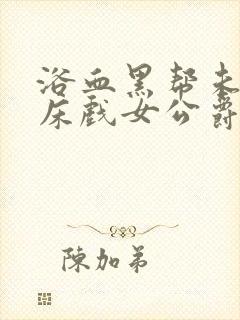 浴血黑帮未
床戏女公爵
陳加弟